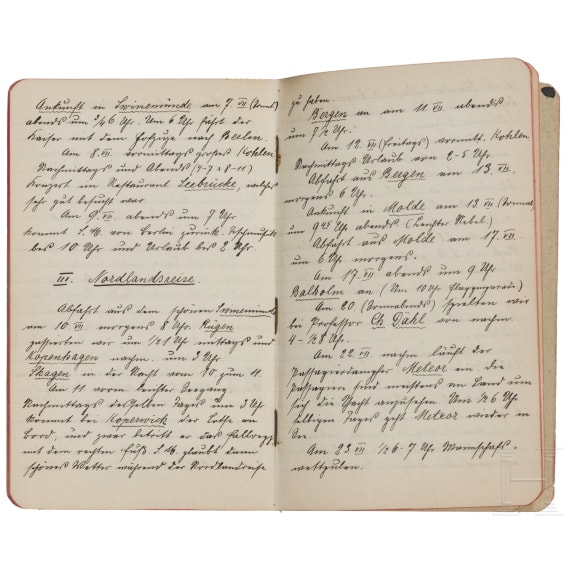 Ankunft in Swinemünde am 7. VII (Sonnt)
abends um ¾6 Uhr. Um 6 Uhr fährt der
Kaiser mit dem Hofzuge nach Berlin.
Am 8. VII. vormittags großes Kohlen
Nachmittags und Abends (4-7 & 8-11)
Konzert im Restaurant Seebrücke, welches
sehr gut besucht war.
Am 9. VII abends um 7 Uhr
kommt S. M. von Berlin zurück.
bis 10 Uhr und Urlaub bis 2 Uhr.
III. Nordlandsreise
Abfahrt aus dem schönen Swinemünde
am 10. VII morgens 8 Uhr. Rügen
passierten wir um ½1 Uhr mittags und
Kopenhagen nachm. um 7 Uhr
Skagen in der Nacht vom 10 zum 11.
Am 11 vorm. leichter Seegang.
Nachmittags desselben Tages um 3 Uhr
kommt bei Koperwick der Lotse an
Bord, und zwar betritt er das Fallreep
mit dem rechten Fuß. S. M. glaubt dann
schönes Wetter während der Nordlandreise
zu haben.
Bergen an am 11. VII abends
um 9½ Uhr.
Am 12. VII (Freitags) vormitt. Kohlen
Nachmittags Urlaub von 2-5 Uhr
Abfahrt aus Bergen am 13. VII.
morgens 6 Uhr.
Ankunft in Molde am 13 VII
um 9 25 Uhr abends (Leichter Nebel)
Abfahrt aus Molde am 17. VII.
um 6 Uhr morgens.
Am 17. VII abends um 9 Uhr
Balholm an (Um 10 Uhr Flaggenparade)
Am 20. (Sonnabends) spielten wir
bei Professor Ch Dahl von nachm.
4-½8 Uhr.
Am 22. VII nachm läuft der
Passagierdampfer Meteor an. Die
Passagiere sind meistens an Land um
sich die Yacht anzusehen. Um ½6 Uhr
selbigen Tages geht Meteor wieder in
See.
Am 23. VII ½6-7 Uhr Mannschafts-
wettpullen.